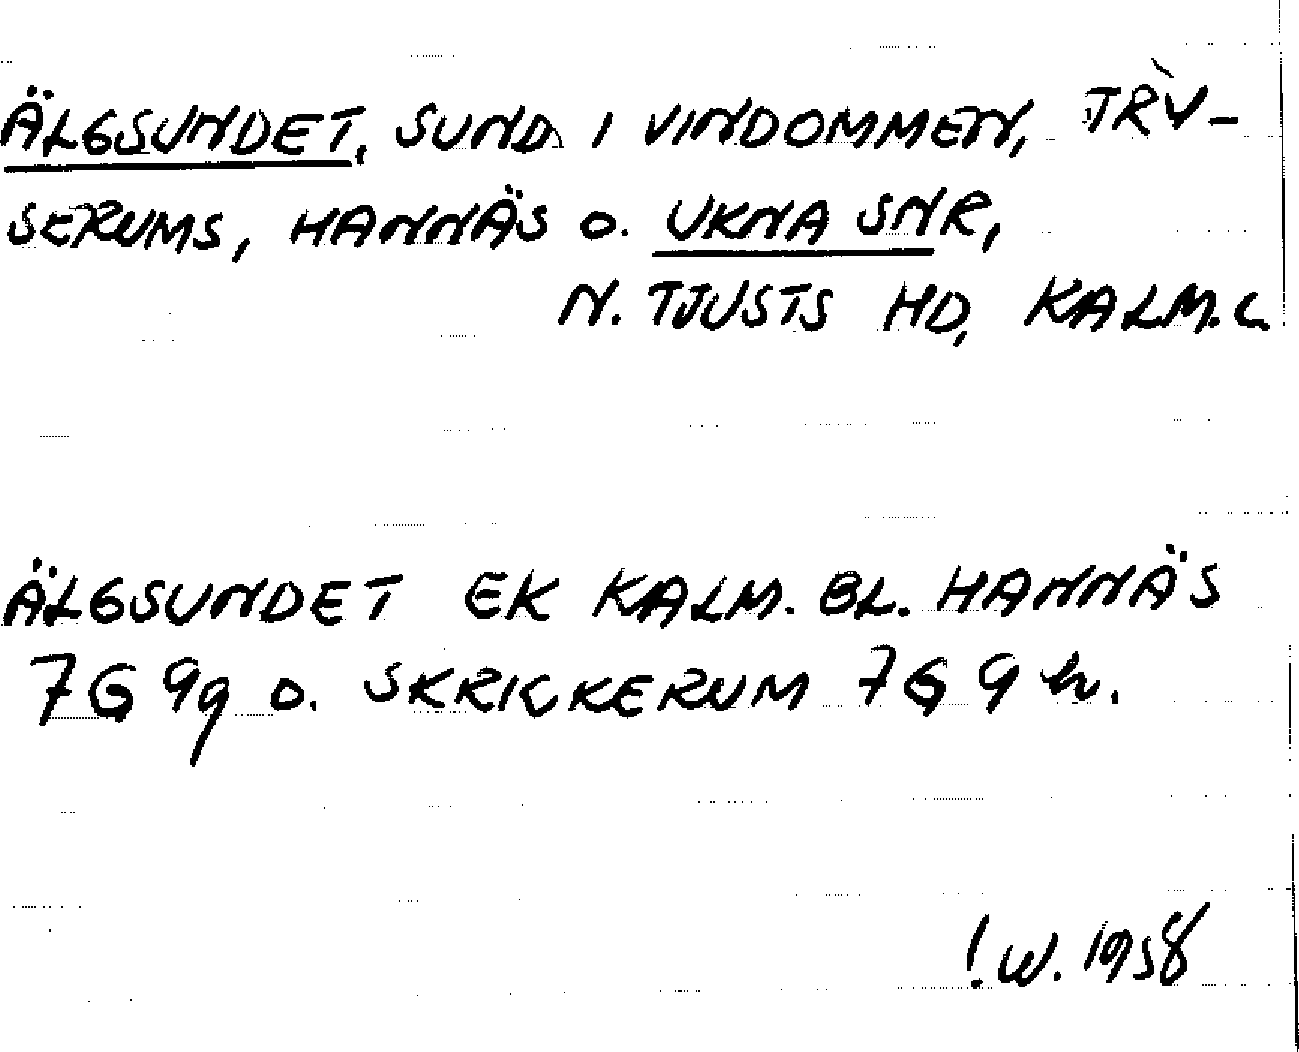 ÄLGSUNDET, SUND I VINDOMMEN, TRY-
SERUMS, HANNÄS O. UKNA SNR,
N. TJUSTS HD, KALM. L.
ÄLGSUNDET EK KALM. BL. HANNÄS
7G 9g O. SKRICKERUM 7G 9h.
! W. 1958